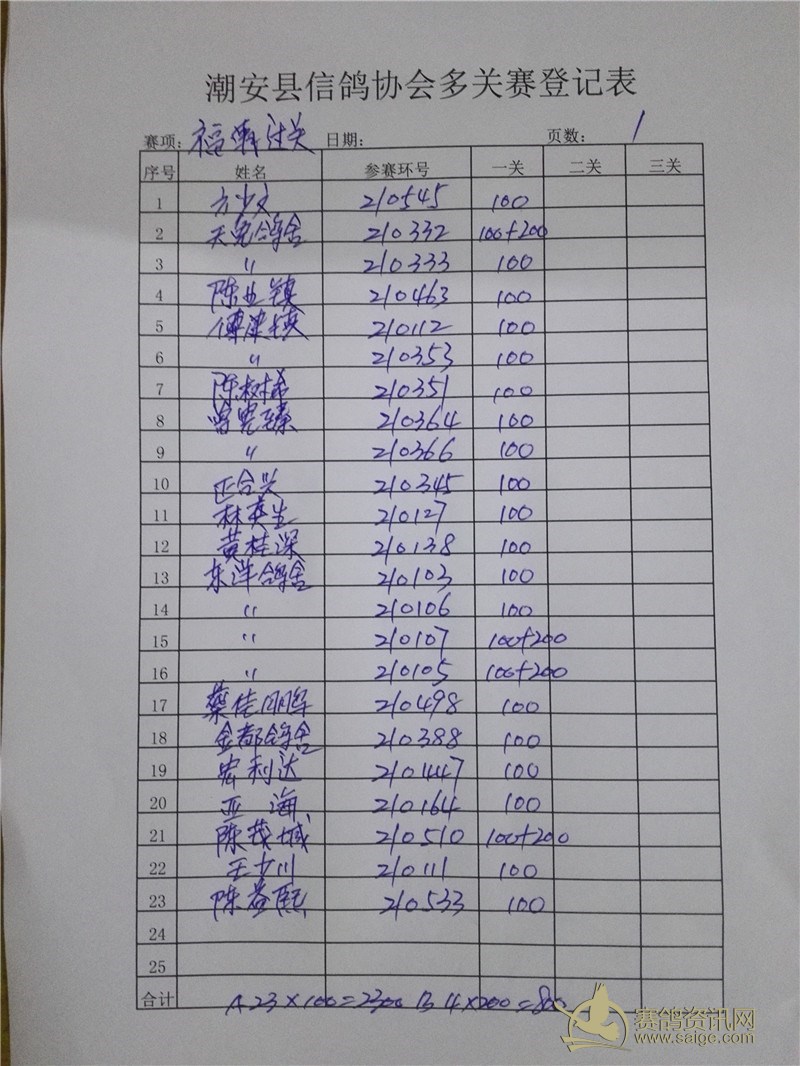 潮安县信鸽协会多关赛登记表
赛项: 福 关 日期: 页数: 1
序号 姓名 参赛环号 一关 二关 三关
1 方少文 210545 100
2 天宠鸽舍 210332 100+200
3 〃 210333 100
4 陈业镇 210463 100
5 傅 210112 100
6 〃 210353 100
7 陈树 210351 100
8 曾宪臻 210364 100
9 〃 210366 100
10 正合兴 210345 100
11 林奕生 210127 100
12 黄桂深 210138 100
13 东洋鸽舍 210103 100
14 〃 210106 100
15 〃 210107 100+200
16 〃 210105 100+200
17 蔡佳明 210498 100
18 金都鸽舍 210388 100
19 宏利达 210447 100
20 亚海 210164 100
21 陈茂城 210510 100+200
22 王少川 210111 100
23 陈益熙 210533 100
24
25
合计 A 23×100=2300 B 4×200=800
赛鸽资讯网
www.saigc.com